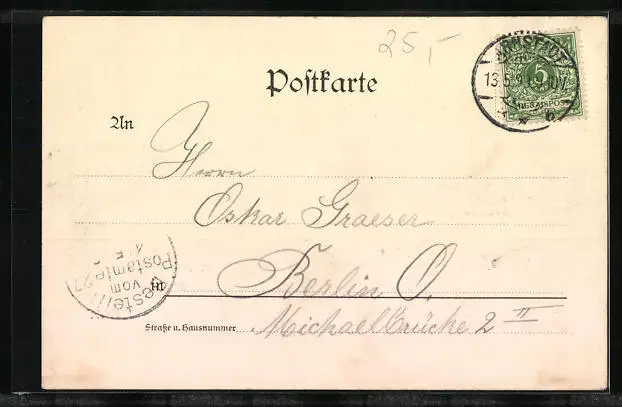 25,-
Postkarte
ARNSTADT
13.5.9
5
REICHSPOST
An
Herrn
Oskar Graeser
Bestellt
vom
Postamte 27
in Berlin O.
Straße u. Hausnummer Michaelbrücke 2 II